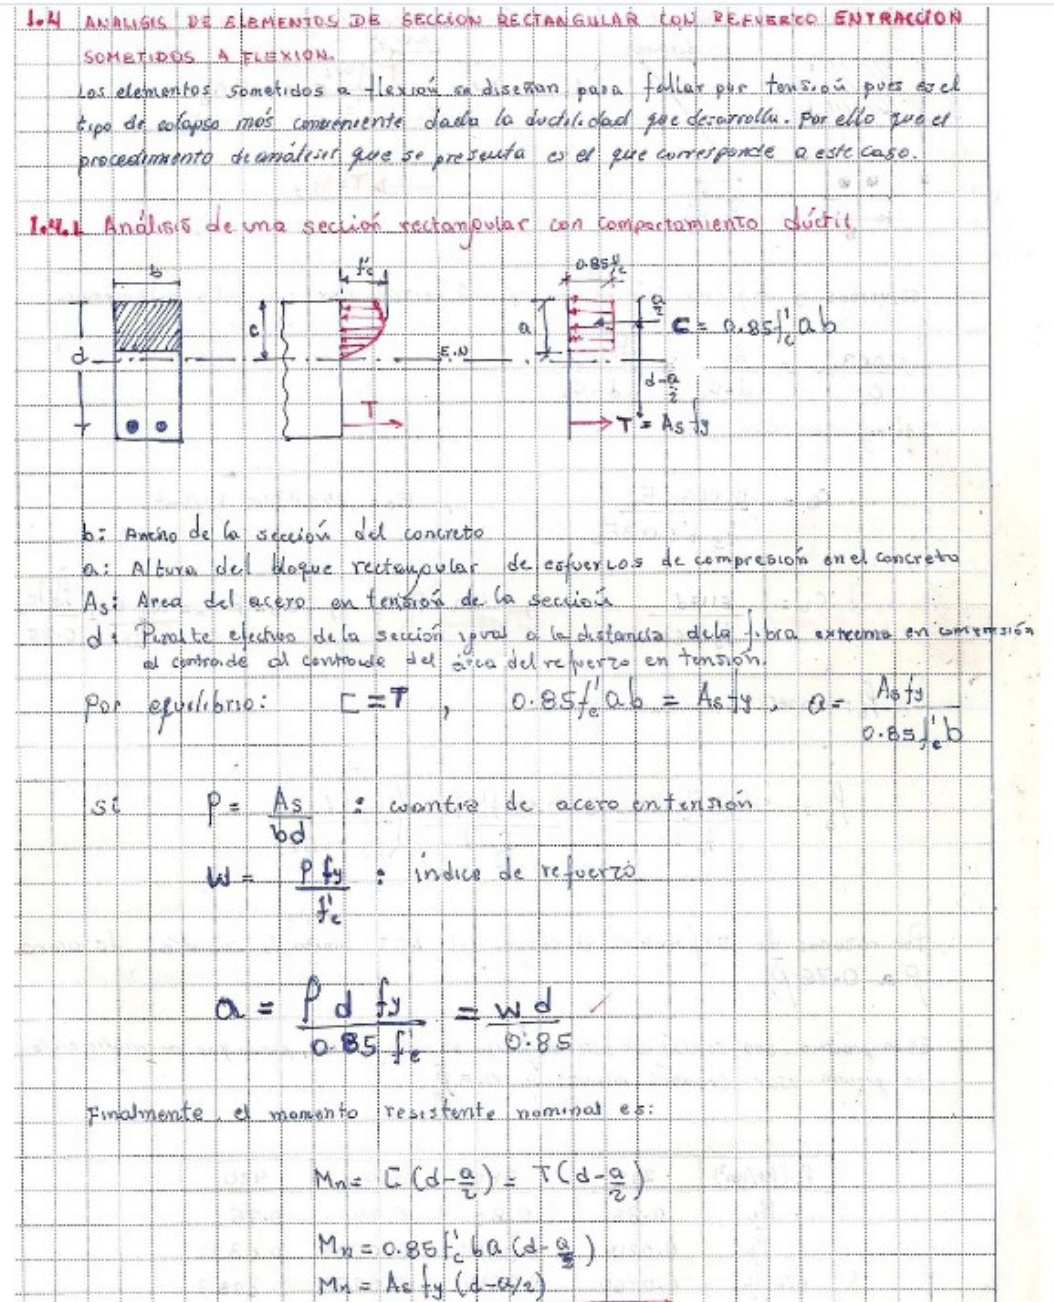 1.4 ANALISIS DE ELEMENTOS DE SECCION RECTANGULAR CON REFUERCO EN TRACCION
SOMETIDOS A FLEXION.
Los elementos sometidos a flexión se diseñan para fallar por tensión pues es el
tipo de colapso más conveniente dada la ductilidad que desarrolla. Por ello que el
procedimiento de análisis que se presenta es el que corresponde a este caso.
1.4.1 Análisis de una sección rectangular con comportamiento dúctil
b
f'c
0.85f'c
d
c
E.N
a
a/2
C = 0.85f'c ab
d-a/2
T
T = As fy
b: Ancho de la sección del concreto
a: Altura del bloque rectangular de esfuercos de compresión en el concreto
As: Area del acero en tensión de la sección
d: Peralte efectivo de la sección igual a la distancia de la fibra extrema en compresión
al centroide al centroide del área del refuerzo en tensión.
Por equilibrio: C = T , 0.85f'c ab = As fy , a = As fy / 0.85f'c b
si ρ = As / bd : cuantia de acero en tensión
w = ρ fy / f'c : indice de refuerzo
a = ρ d fy / 0.85 f'c = w d / 0.85
Finalmente el momento resistente nominal es:
Mn = C (d-a/2) = T(d-a/2)
Mn = 0.85 f'c ba (d-a/2)
Mn = As fy (d-a/2)